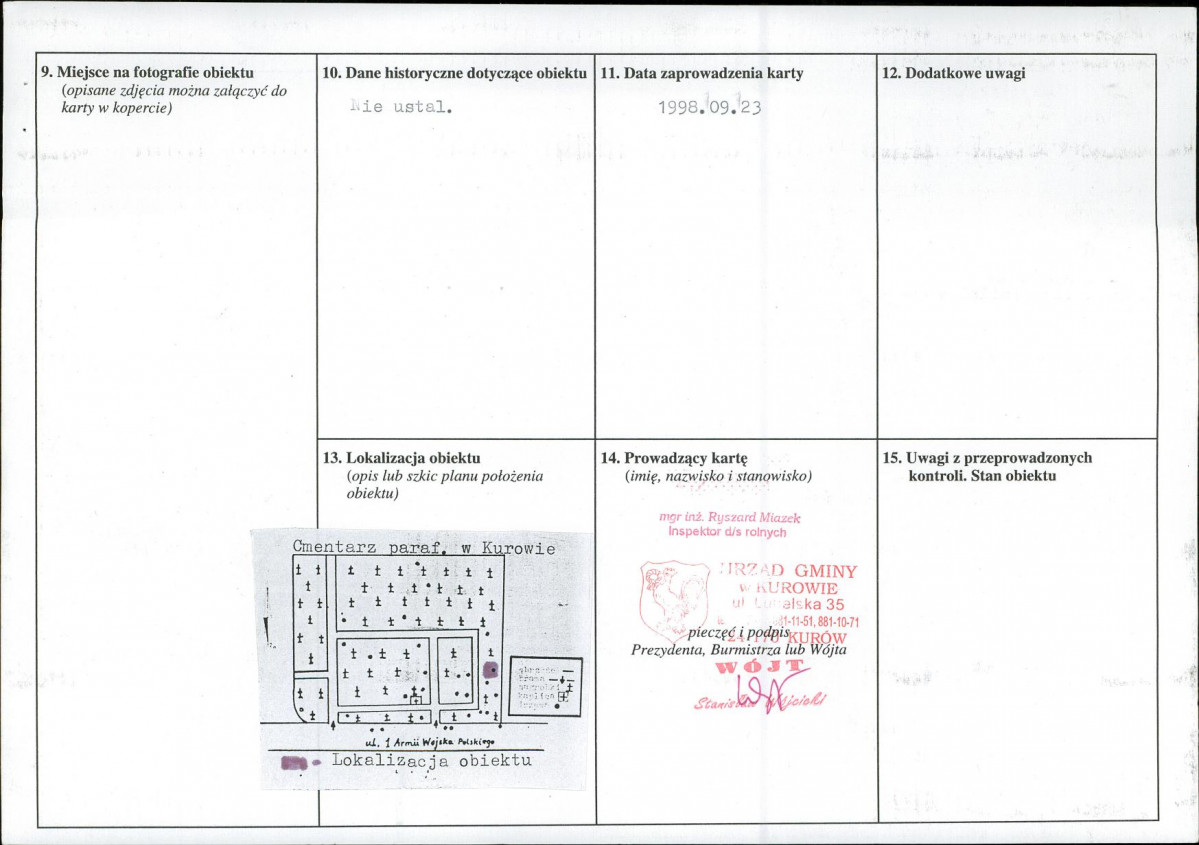 9. Miejsce na fotografie obiektu
(opisane zdjęcia można załączyć do
karty w kopercie)
10. Dane historyczne dotyczące obiektu
Nie ustal.
11. Data zaprowadzenia karty
1998.09.23
12. Dodatkowe uwagi
13. Lokalizacja obiektu
(opis lub szkic planu położenia
obiektu)
Cmentarz paraf. w Kurowie
ul. 1 Armii Wojska Polskiego
Lokalizacja obiektu
14. Prowadzący kartę
(imię, nazwisko i stanowisko)
mgr inż. Ryszard Miazek
Inspektor d/s rolnych
URZĄD GMINY
w KUROWIE
ul. Lubelska 35
81-11-51, 881-10-71
24-170 KURÓW
pieczęć i podpis
Prezydenta, Burmistrza lub Wójta
WÓJT
Stanisław Wójcicki
15. Uwagi z przeprowadzonych
kontroli. Stan obiektu